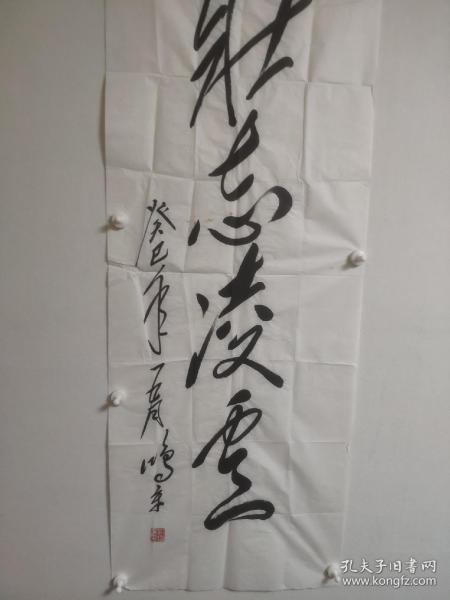 壮志凌云
癸巳年一月鸣京
孔夫子旧书网
www.kongfz.com